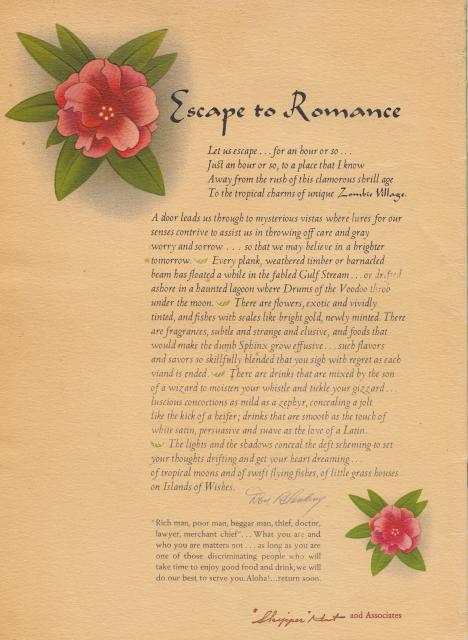 Escape to Romance
Let us escape . . . for an hour or so . . .
Just an hour or so, to a place that I know
Away from the rush of this clamorous shrill age
To the tropical charms of unique Zombie Village.
A door leads us through to mysterious vistas where lures for our
senses contrive to assist us in throwing off care and gray
worry and sorrow . . . so that we may believe in a brighter
tomorrow. Every plank, weathered timber or barnacled
beam has floated a while in the fabled Gulf Stream . . . or drifted
ashore in a haunted lagoon where Drums of the Voodoo throb
under the moon. There are flowers, exotic and vividly
tinted, and fishes with scales like bright gold, newly minted. There
are fragrances, subtle and strange and elusive, and foods that
would make the dumb Sphinx grow effusive . . . such flavors
and savors so skillfully blended that you sigh with regret as each
viand is ended. There are drinks that are mixed by the son
of a wizard to moisten your whistle and tickle your gizzard . . .
luscious concoctions as mild as a zephyr, concealing a jolt
like the kick of a heifer; drinks that are smooth as the touch of
white satin, persuasive and suave as the love of a Latin.
The lights and the shadows conceal the deft scheming to set
your thoughts drifting and get your heart dreaming . . .
of tropical moons and of swift flying fishes, of little grass houses
on Islands of Wishes.
"Rich man, poor man, beggar man, thief, doctor,
lawyer, merchant chief" . . . What you are and
who you are matters not . . . as long as you are
one of those discriminating people who will
take time to enjoy good food and drink, we will
do our best to serve you. Aloha! . . . return soon.
"Skipper" Kent and Associates